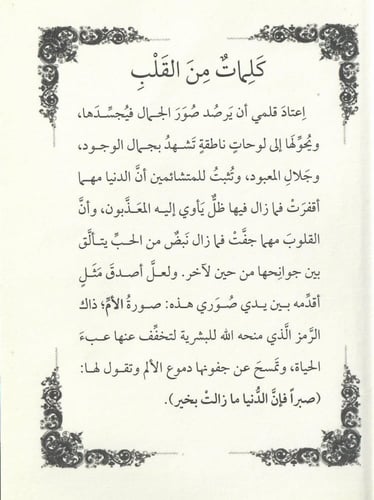 كَلِماتٌ مِنَ القَلْبِ
اِعتادَ قلمي أن يَرصُد صُوَرَ الجمال فيُجسِّدَها،
ويُحوِّلَها إلى لوحاتٍ ناطقةٍ تَشهدُ بجمال الوجود،
وجَلالِ المعبود، وتُثبتُ للمتشائمين أنَّ الدنيا مهما
أقفرَتْ فما زال فيها ظلٌّ يَأوي إليه المعذَّبون، وأنَّ
القلوبَ مهما جفَّتْ فما زال نَبضٌ من الحبِّ يتألَّق
بين جوانِحها من حين لآخر. ولعلَّ أصدقَ مَثَلٍ
أقدِّمه بين يدي صُوَري هذه: صورةُ الأمِّ؛ ذاك
الرَّمز الَّذي منحه الله للبشرية لتخفِّف عنها عبءَ
الحياة، وتمسحَ عن جفونها دموع الألم وتقول لها:
(صبراً فإنَّ الدُّنيا ما زالتْ بخير).